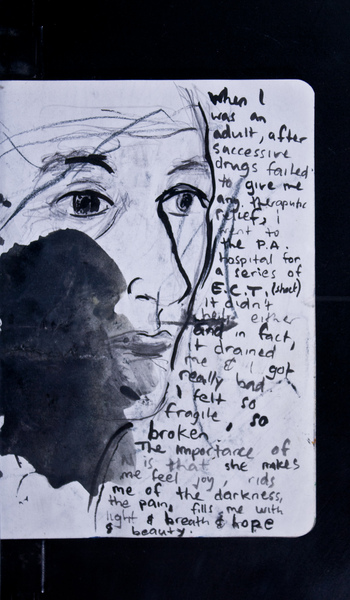 When I
was an
adult, after
successive
drugs failed
to give me
any theraputic
relief, i
went to
the P.A.
hospital for
a series of
E.C.T. (shock)
it didn't
help either
and in fact,
it drained
me & i got
really bad.
I felt so
fragile, so
broken
The importance of
is that she makes
me feel joy, rids
me of the darkness,
the pain, fills me with
light & breath & hope
& beauty.